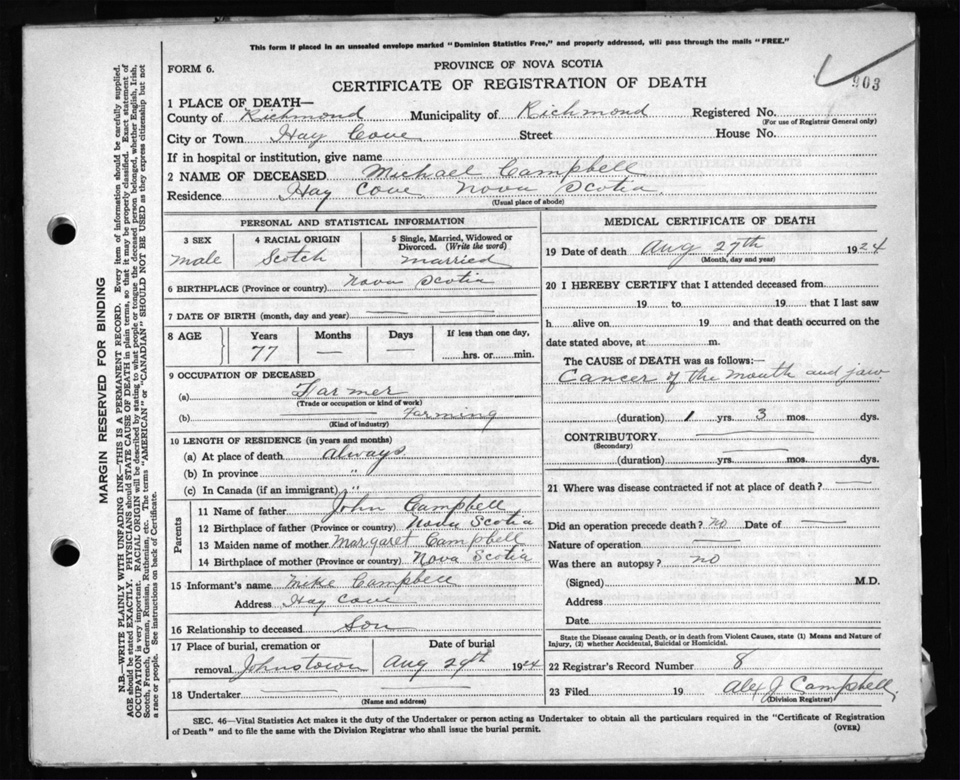 This form if placed in an unsealed envelope marked "Dominion Statistics Free," and properly addressed, will pass through the mails "FREE."
903
FORM 6.
PROVINCE OF NOVA SCOTIA
CERTIFICATE OF REGISTRATION OF DEATH
1 PLACE OF DEATH—
County of Richmond Municipality of Richmond Registered No.
(For use of Registrar General only)
City or Town Hay Cove Street House No.
If in hospital or institution, give name
2 NAME OF DECEASED Michael Campbell
Residence Hay Cove Nova Scotia
(Usual place of abode)
PERSONAL AND STATISTICAL INFORMATION
3 SEX
male
4 RACIAL ORIGIN
Scotch
5 Single, Married, Widowed or
Divorced. (Write the word)
married
6 BIRTHPLACE (Province or country) Nova Scotia
7 DATE OF BIRTH (month, day and year) — —
8 AGE
Years
77
Months
—
Days
—
If less than one day,
hrs. or min.
9 OCCUPATION OF DECEASED
(a) Farmer
(Trade or occupation or kind of work)
(b) Farming
(Kind of industry)
10 LENGTH OF RESIDENCE (in years and months)
(a) At place of death always
(b) In province "
(c) In Canada (if an immigrant) "
Parents
11 Name of father John Campbell
12 Birthplace of father (Province or country) Nova Scotia
13 Maiden name of mother Margaret Campbell
14 Birthplace of mother (Province or country) Nova Scotia
15 Informant's name Mike Campbell
Address Hay Cove
16 Relationship to deceased Son
17 Place of burial, cremation or
removal Johnstown
Date of burial
Aug 29th 1924
18 Undertaker — —
(Name and address)
MEDICAL CERTIFICATE OF DEATH
19 Date of death Aug 27th 1924
(Month, day and year)
20 I HEREBY CERTIFY that I attended deceased from
19 to 19 that I last saw
h alive on 19 and that death occurred on the
date stated above, at m.
The CAUSE OF DEATH was as follows:—
Cancer of the mouth and jaw
(duration) 1 yrs. 3 mos. dys.
CONTRIBUTORY —
(Secondary)
(duration) yrs. — mos. dys.
21 Where was disease contracted if not at place of death? —
Did an operation precede death? no Date of —
Nature of operation —
Was there an autopsy? no
(Signed) M.D.
Address
Date
State the Disease causing Death, or in death from Violent Causes, state (1) Means and Nature of
Injury, (2) whether Accidental, Suicidal or Homicidal.
22 Registrar's Record Number 8
23 Filed 19 Alex J. Campbell
(Division Registrar)
SEC. 46—Vital Statistics Act makes it the duty of the Undertaker or person acting as Undertaker to obtain all the particulars required in the "Certificate of Registration
of Death" and to file the same with the Division Registrar who shall issue the burial permit.
(OVER)
MARGIN RESERVED FOR BINDING
N.B.—WRITE PLAINLY WITH UNFADING INK—THIS IS A PERMANENT RECORD. Every item of information should be carefully supplied.
AGE should be stated EXACTLY. PHYSICIANS should STATE CAUSE OF DEATH in plain terms, so that it may be properly classified. Exact statement of
OCCUPATION is very important. RACIAL ORIGIN will be described by stating to what people or tongue the deceased person belonged, whether English, Irish,
Scotch, French, German, Russian, Ruthenian, etc. The terms "AMERICAN" or "CANADIAN" SHOULD NOT BE USED as they express citizenship but not
a race or people. See instructions on back of Certificate.